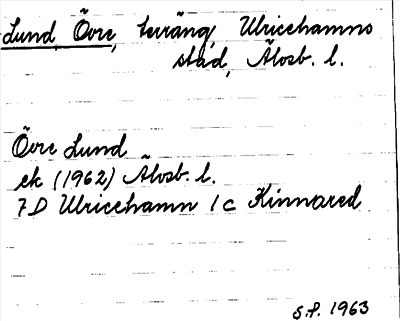 Lund, Övre, terräng, Ulricehamns
stad, Älvsb. l.
Övre Lund
ek (1962) Älvsb. l.
7D Ulricehamn 1c Kinnared
S.P. 1963